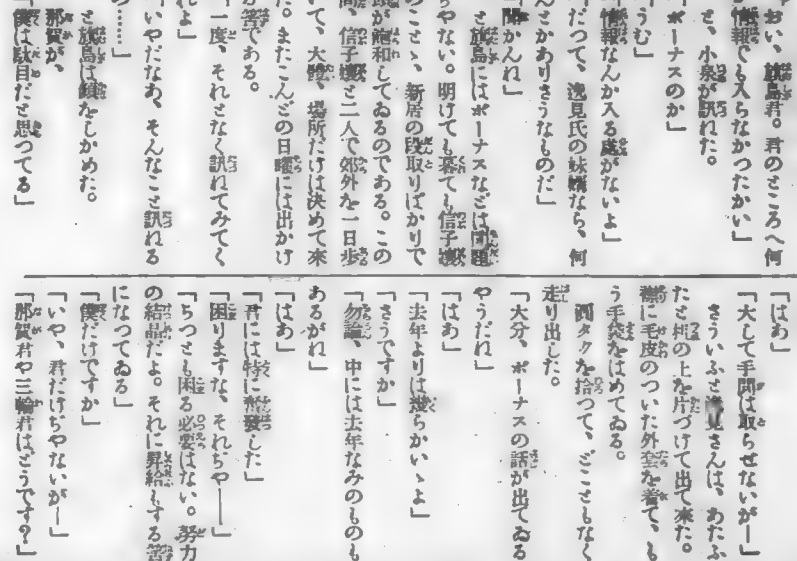 おい、旗島君。君のところへ何
情報でも入らなかつたかい」
と、小泉が訊ねた。
「ボーナスのか」
うむ」
情報なんか入る筈がないよ」
だつて、逸見氏の妹婿なら、何
んとかありさうなものだ」
聞かんね」
と旗島にはボーナスなどは問題
ぢやない。明けても暮ても信子嬢
のことゝ、新居の段取りばかりで
が飽和してゐるのである。この
間、信子嬢と二人で郊外を一日歩
いて、大體、場所だけは決めて來
た。またこんどの日曜には出かけ
筈である。
一度、それとなく訊ねてみてく
れよ」
いやだなあ、そんなこと訊ねる
の……」
と旗島は顔をしかめた。
那賀が、
「僕は駄目だと思つてる」
「はあ」
「大して手間は取らせないが―」
さういふと逸見さんは、あたふ
たと机の上を片づけて出て來た。
襟に毛皮のついた外套を着て、も
う手袋をはめてゐる。
圓タクを拾つて、どこともなく
走り出した。
「大分、ボーナスの話が出てゐる
やうだね」
「はあ」
「去年よりは幾らかいゝよ」
「さうですか」
「勿論、中には去年なみのものも
あるがね」
「はあ」
「君には特に奮發した」
「困りますな、それぢや――」
「ちつとも困る必要はない。努力
の結晶だよ。それに昇給もする筈
になつてゐる」
「僕だけですか」
「いや、君だけぢやないが―」
「那賀君や三輪君は、どうです?」